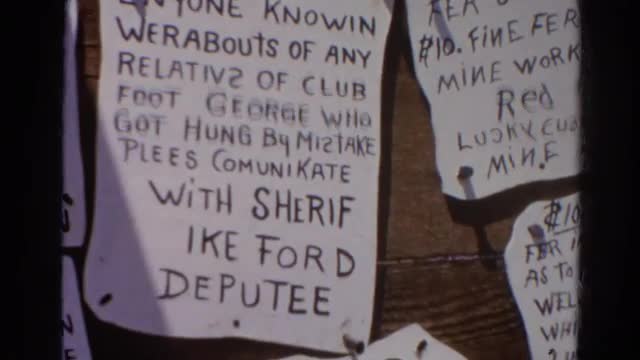 ENYONE KNOWIN
WERABOUTS OF ANY
RELATIVS OF CLUB
FOOT GEORGE WHO
GOT HUNG By MISTAKE
PLEES COMUNIKATE
WITH SHERIF
IKE FORD
DEPUTEE
FER
$10. FINE FER
MINE WORK
Red
LUCKY CUSS
MINE
$10
FER
AS TO
WEL